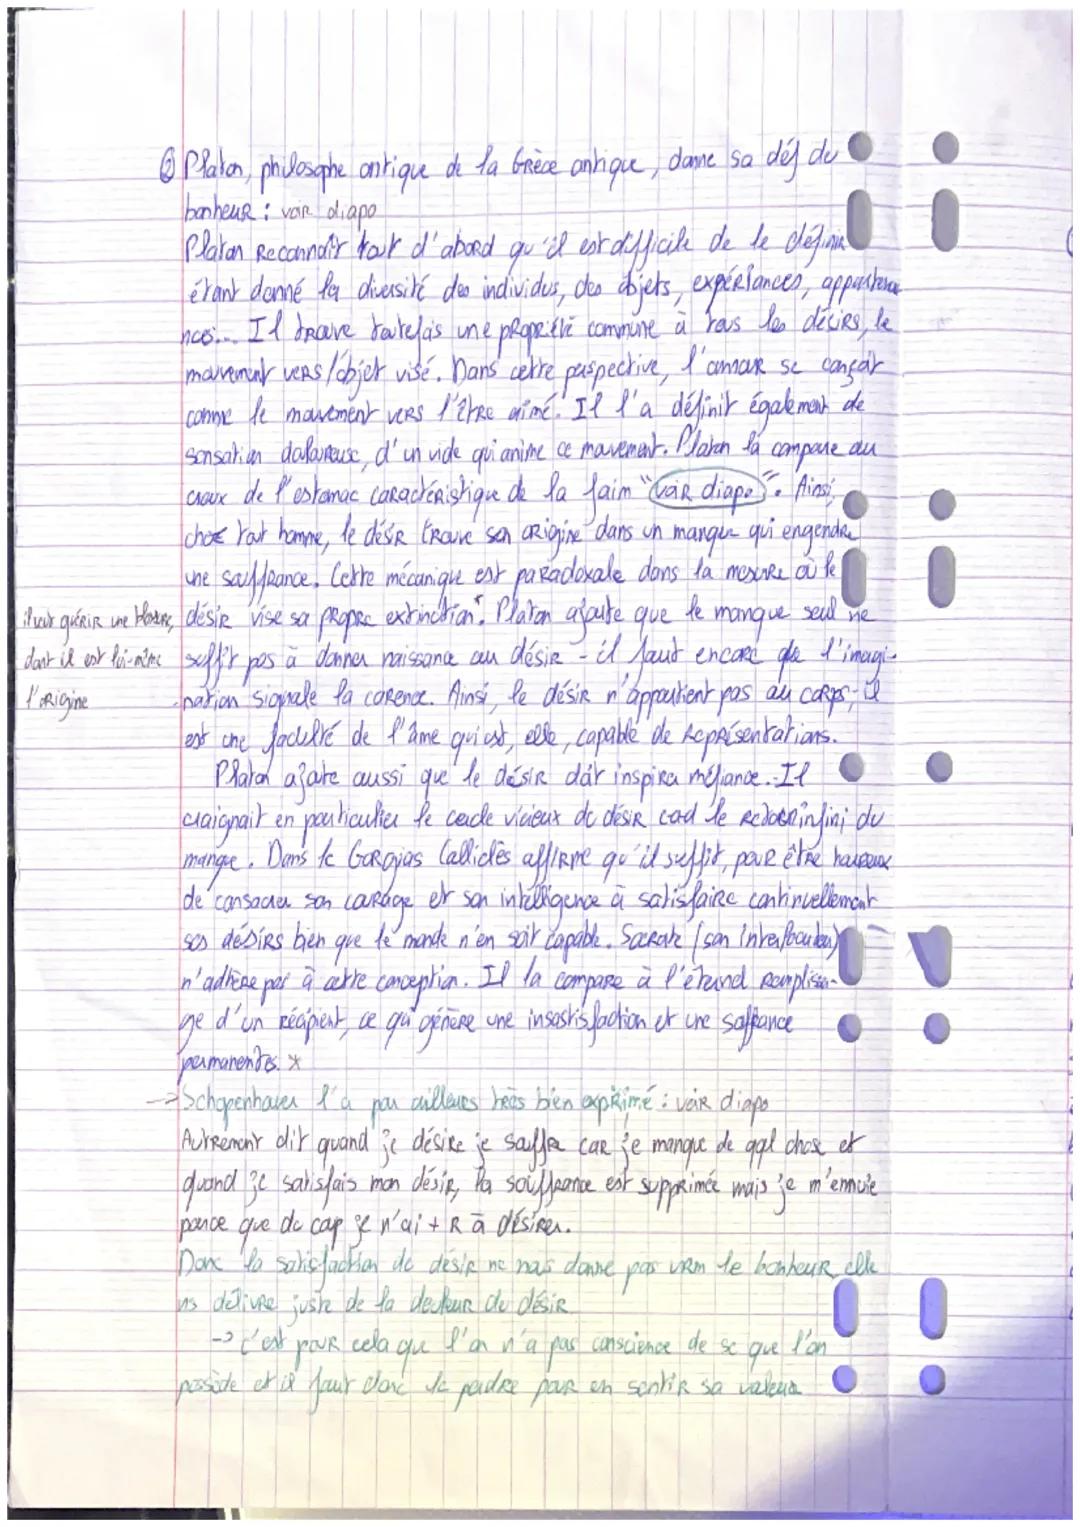 ② Platon, philosophe antique de la Grèce antique, donne sa déf du
bonheur : voir diapo
Platon reconnaît tout d'abord qu'il est difficile de le définir
étant donné la diversité des individus, des objets, expériances, appartena
nces... Il trouve toutefois une propriété commune à tous les désirs, le
mouvement vers l'objet visé. Dans cette perspective, l'amour se conçoit
comme le mouvement vers l'être aimé. Il l'a définit également de
sensation douloureuse, d'un vide qui anime ce mouvement. Platon la compare au
creux de l'estomac caractéristique de la faim "voir diapo". Ainsi,
chez tout homme, le désir trouve son origine dans un manque qui engendre
une souffrance. Cette mécanique est paradoxale dans la mesure où le
il veut guérir une blessure,
dont il est lui-même
l'origine
désir vise sa propre extinction. Platon ajoute que le manque seul ne
suffit pas à donner naissance au désir - il faut encore que l'imagi-
nation signale la carence. Ainsi, le désir n'appartient pas au corps, il
est une faculté de l'âme qui est, elle, capable de représentations.
Platon ajoute aussi que le désir doit inspirer méfiance. Il
craignait en particulier le cercle vicieux du désir cad le retour infini du
manque. Dans le Gorgias Calliclès affirme qu'il suffit, pour être heureux
de consacrer son courage et son intelligence à satisfaire continuellement
ses désirs bien que le monde n'en soit capable. Socrate (son interlocuteur)
n'adhère pas à cette conception. Il la compare à l'éternel remplissa-
ge d'un récipient, ce qui génère une insastisfaction et une souffrance
permanentes. *
→ Schopenhauer l'a par ailleurs très bien exprimé : voir diapo
Autrement dit quand je désire je souffre car je manque de qql chose et
quand je satisfais mon désir, la souffrance est supprimée mais je m'ennuie
parce que du coup je n'ai + R à désirer.
Donc la satisfaction du désir ne nous donne pas vrm le bonheur elle
ns délivre juste de la douleur du désir
-> c'est pour cela que l'on n'a pas conscience de se que l'on
possède et il faut donc le perdre pour en sentir sa valeur